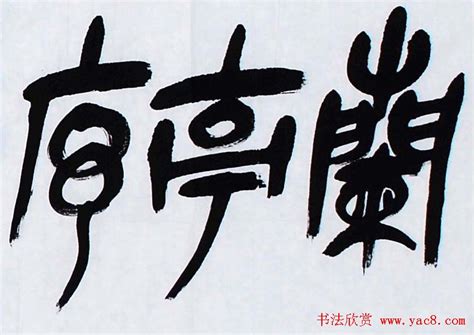 蘭亭序
书法欣赏
www.yac8.com